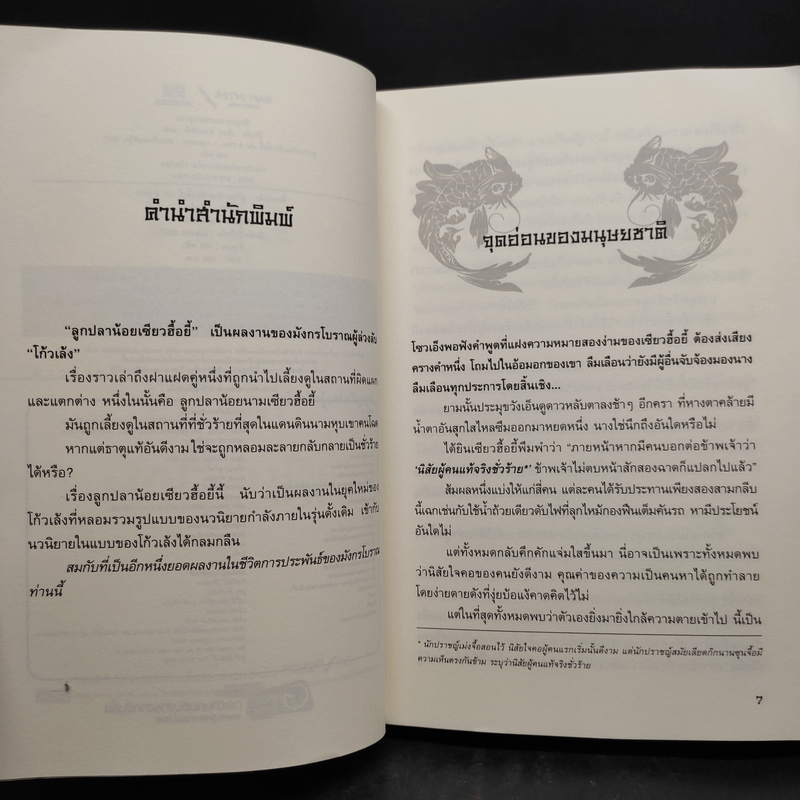 คำนำสำนักพิมพ์
“ลูกปลาน้อยเซียวฮื้อยี้” เป็นผลงานของมังกรโบราณผู้ล่วงลับ
“โก้วเล้ง”
เรื่องราวเล่าถึงฝาแฝดคู่หนึ่งที่ถูกนำไปเลี้ยงดูในสถานที่ผิดแผก
และแตกต่าง หนึ่งในนั้นคือ ลูกปลาน้อยนามเซียวฮื้อยี้
มันถูกเลี้ยงดูในสถานที่ที่ชั่วร้ายที่สุดในแดนดินนามหุบเขาคนโฉด
หากแต่ธาตุแท้อันดีงาม ใช่จะถูกหลอมละลายกลับกลายเป็นชั่วร้าย
ได้หรือ?
เรื่องลูกปลาน้อยเซียวฮื้อยี้นี้ นับว่าเป็นผลงานในยุคใหม่ของ
โก้วเล้งที่หลอมรวมรูปแบบของนวนิยายกำลังภายในรุ่นดั้งเดิม เข้ากับ
นวนิยายในแบบของโก้วเล้งได้กลมกลืน
สมกับที่เป็นอีกหนึ่งยอดผลงานในชีวิตการประพันธ์ของมังกรโบราณ
ท่านนี้
จุดอ่อนของมนุษยชาติ
โซวเอ็งพอฟังคำพูดที่แฝงความหมายสองง่ามของเซียวฮื้อยี้ ต้องส่งเสียง
ครางคำหนึ่ง โถมไปในอ้อมอกของเขา ลืมเลือนว่ายังมีผู้อื่นจับจ้องมองนาง
ลืมเลือนทุกประการโดยสิ้นเชิง...
ยามนั้นประมุขวังเอ็นดูดาวหลับตาลงช้าๆ อีกครา ที่หางตาคล้ายมี
น้ำตาอันสุกใสไหลซึมออกมาหยดหนึ่ง นางใช่นึกถึงอันใดหรือไม่
ได้ยินเซียวฮื้อยี้พึมพำว่า “ภายหน้าหากมีคนบอกต่อข้าพเจ้าว่า
‘นิสัยผู้คนแท้จริงชั่วร้าย*’ ข้าพเจ้าไม่ตบหน้าสักสองฉาดก็แปลกไปแล้ว”
ส้มผลหนึ่งแบ่งให้แก่สี่คน แต่ละคนได้รับประทานเพียงสองสามกลีบ
นี้เฉกเช่นกับใช้น้ำถ้วยเดียวดับไฟที่ลุกไหม้กองฟืนเต็มคันรถ หามีประโยชน์
อันใดไม่
แต่ทั้งหมดกลับคึกคักแจ่มใสขึ้นมา นี่อาจเป็นเพราะทั้งหมดพบ
ว่านิสัยใจคอของคนยังดีงาม คุณค่าของความเป็นคนหาได้ถูกทำลาย
โดยง่ายดายดังที่งุ่ยบ้อแง้คาดคิดไว้ไม่
แต่ในที่สุดทั้งหมดพบว่าตัวเองยิ่งมายิ่งใกล้ความตายเข้าไป นี้เป็น
* นักปราชญ์เม่งจื้อสอนไว้ นิสัยใจคอผู้คนแรกเริ่มนั้นดีงาม แต่นักปราชญ์สมัยเลียดก๊กนามซุนจื้อมี
ความเห็นตรงกันข้าม ระบุว่านิสัยผู้คนแท้จริงชั่วร้าย
7